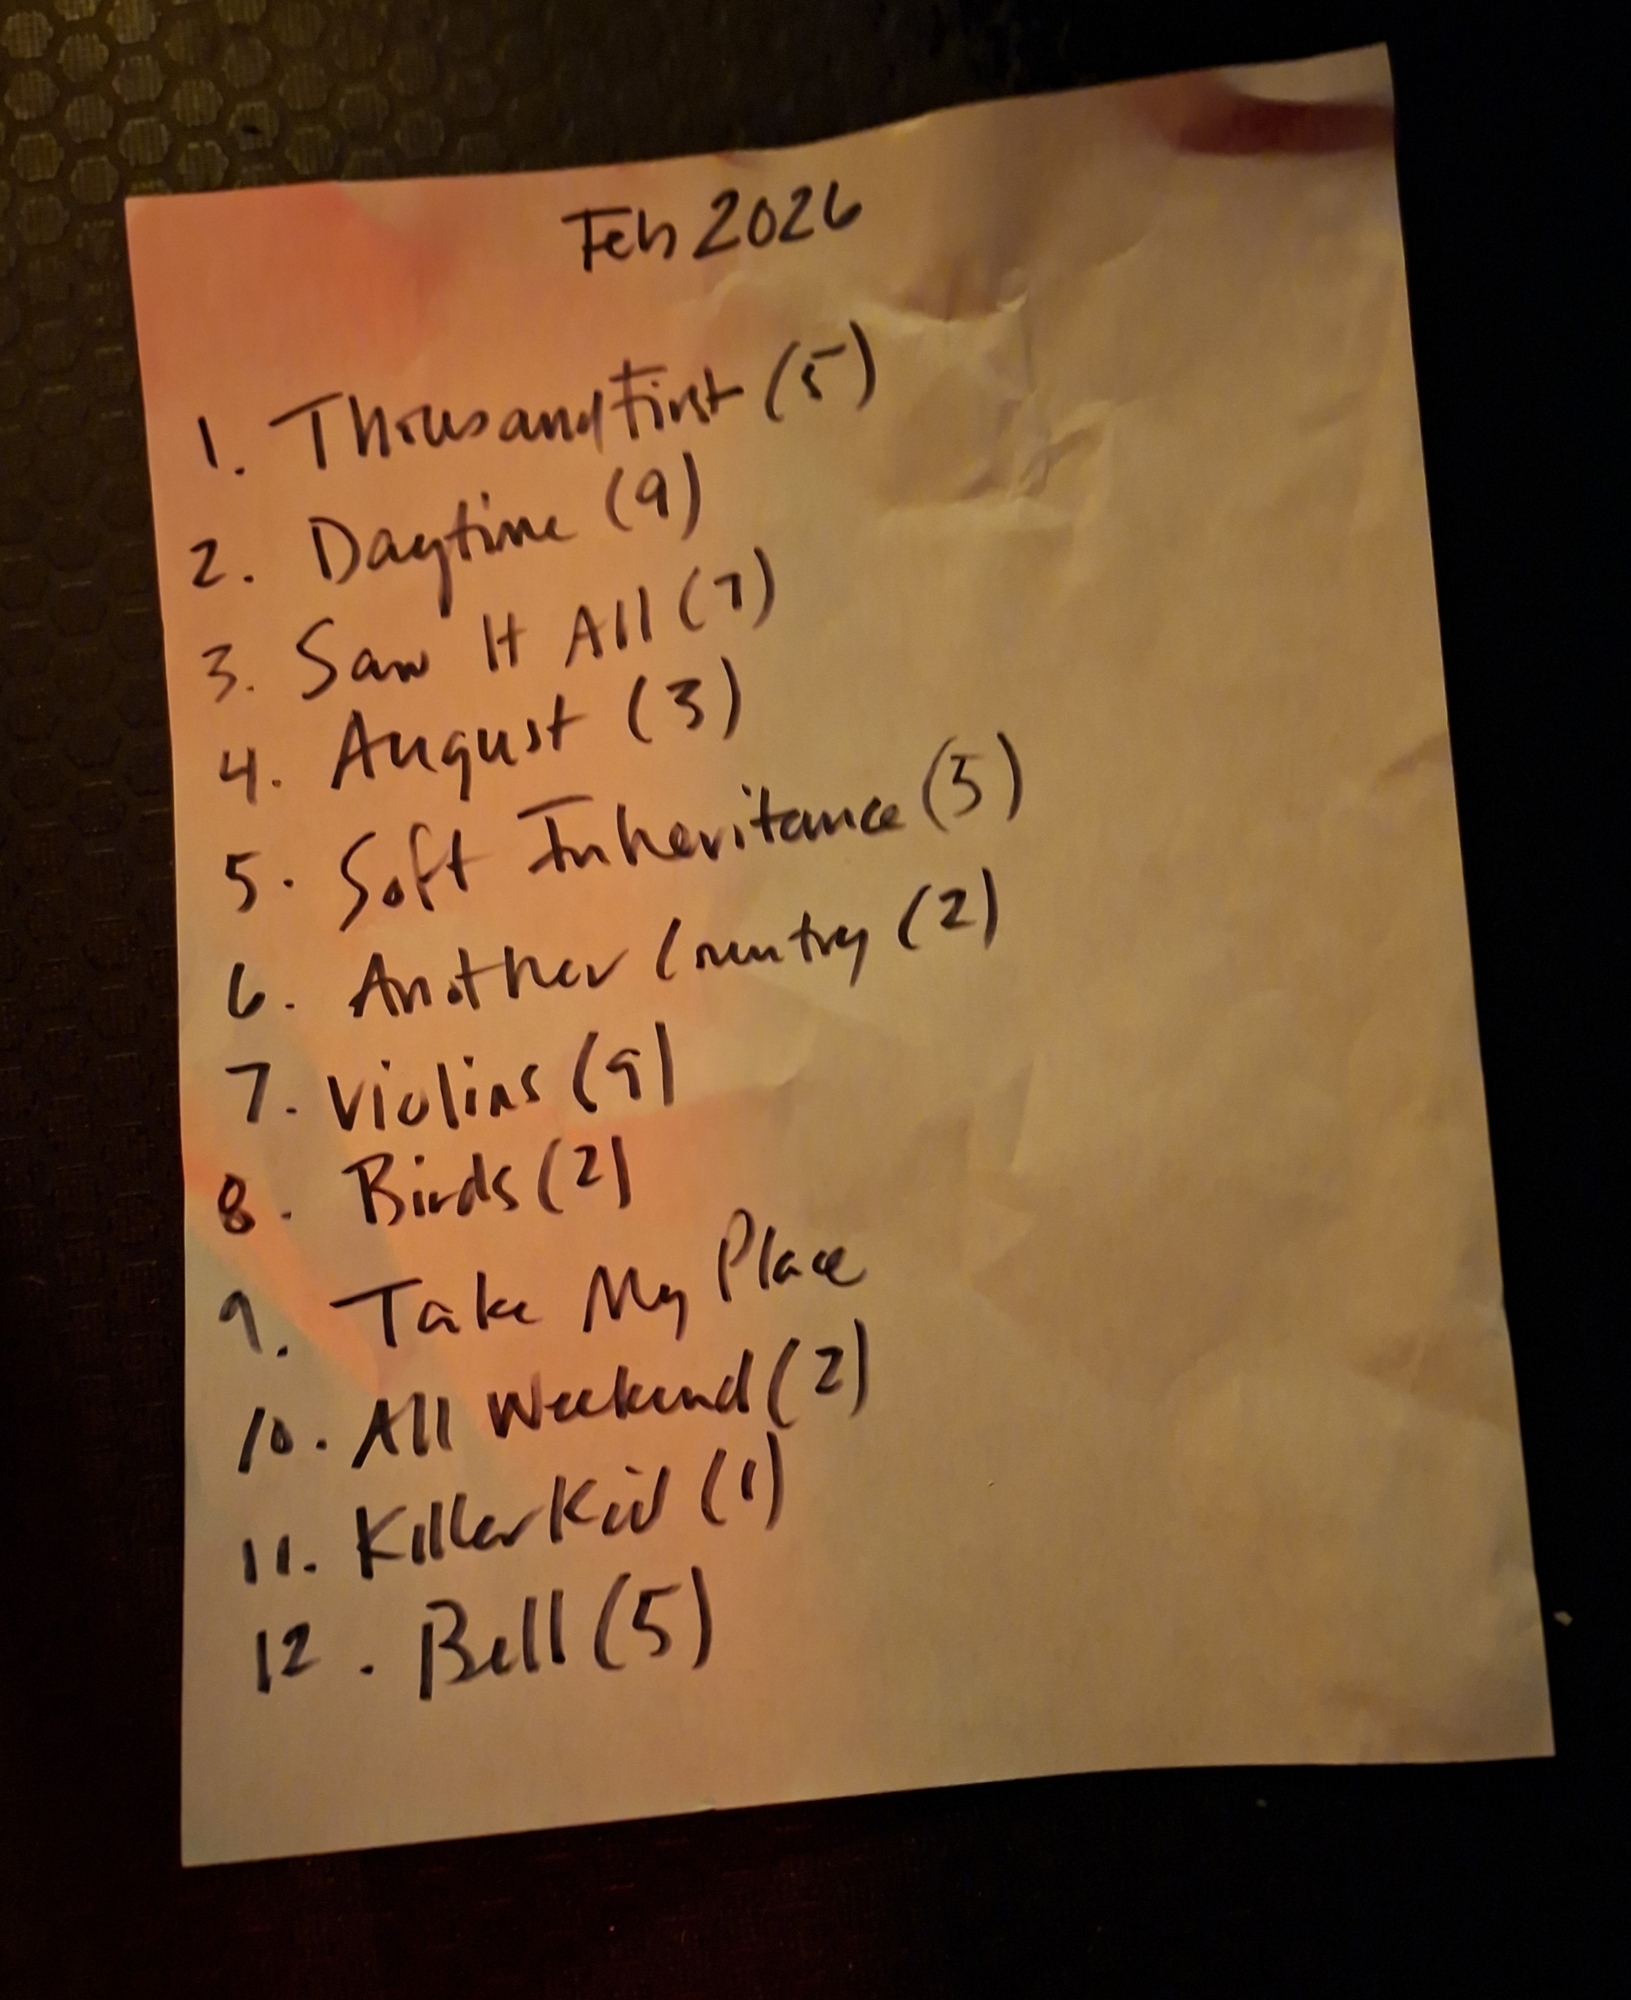 Feb 2026
1. Thousandfirst (5)
2. Daytime (9)
3. Saw It All (7)
4. August (3)
5. Soft Inheritance (5)
6. Another Country (2)
7. Violins (9)
8. Birds (2)
9. Take My Place
10. All Weekend (2)
11. KillerKid (1)
12. Bell (5)